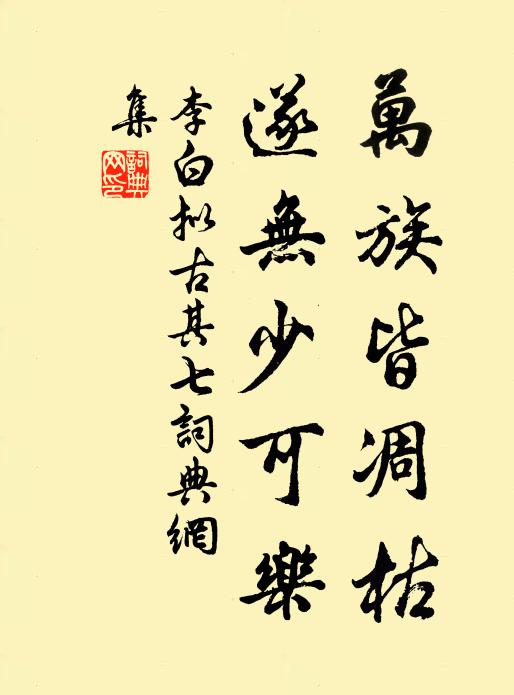 萬族皆凋枯
遂無少可樂
李白拟古其七詞典網
集
詞典
网印